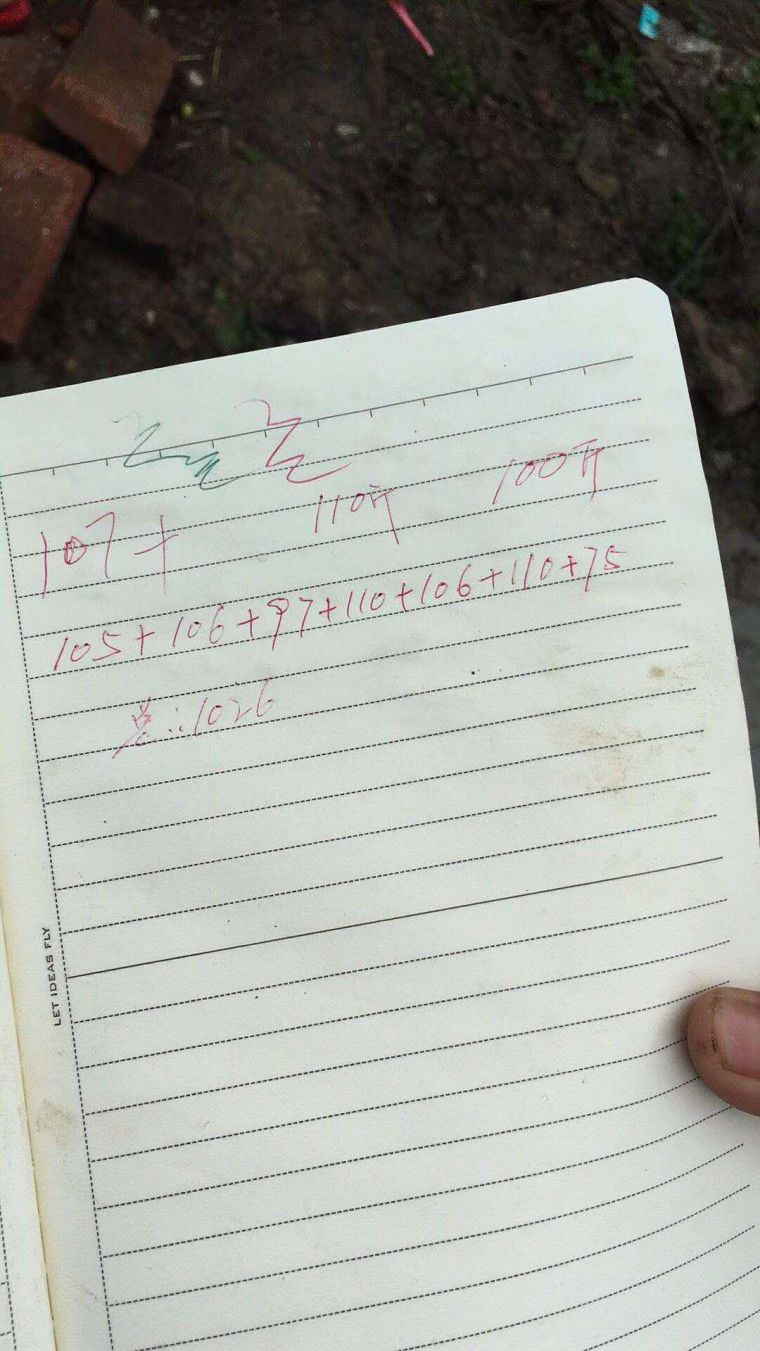 107+ 110斤 100斤
105+106+97+110+106+110+75
总:1026
LET IDEAS FLY